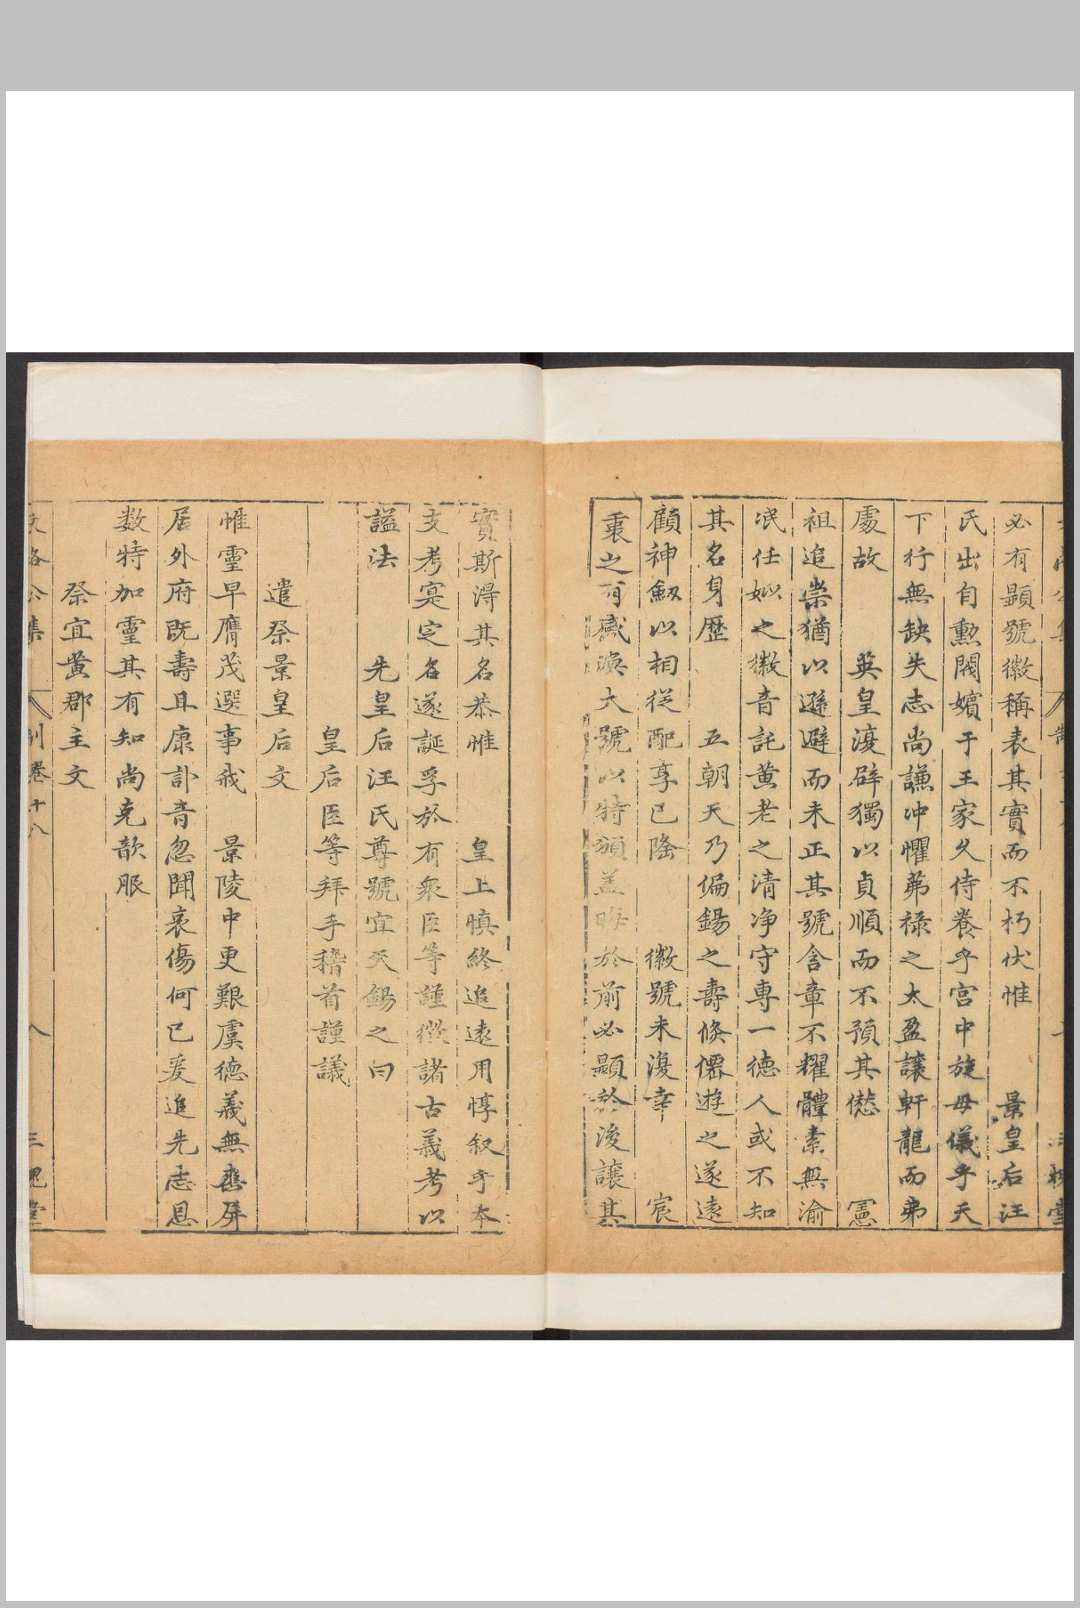 必有顯號徽稱表其實而不朽伏惟　景皇后汪
氏出自勳閥嬪于王家久侍養乎宮中旋母儀乎天
下行無缺失志尚謙冲懼茀祿之太盈讓軒龍而弗
處故　英皇復辟獨以貞順而不預其愆　憲
祖追崇猶以遜避而未正其號含章不耀體素無渝
泯任姒之徽音託黄老之清净守専一德人或不知
其名身歷　五朝天乃偏錫之壽倏僊遊之遂遠
顧神劔以相從配享已隆　徽號未復幸　宸
衷之有感渙大號以特頒蓋晦於前必顯於後讓其
實斯得其名恭惟　皇上慎終追遠用惇叙乎本
支考寔定名遂誕孚於有衆臣等謹徴諸古義考以
謚法　先皇后汪氏尊號宜天錫之曰
皇后臣等拜手稽首謹議
遣祭景皇后文
惟靈早膺茂選事我　景陵中更艱虞德義無愆屏
居外府既壽且康訃音忽聞哀傷何已爰追先志恩
数特加靈其有知尚克歆服
祭宜黄郡主文
文恪公集　制卷十八　八　三槐堂